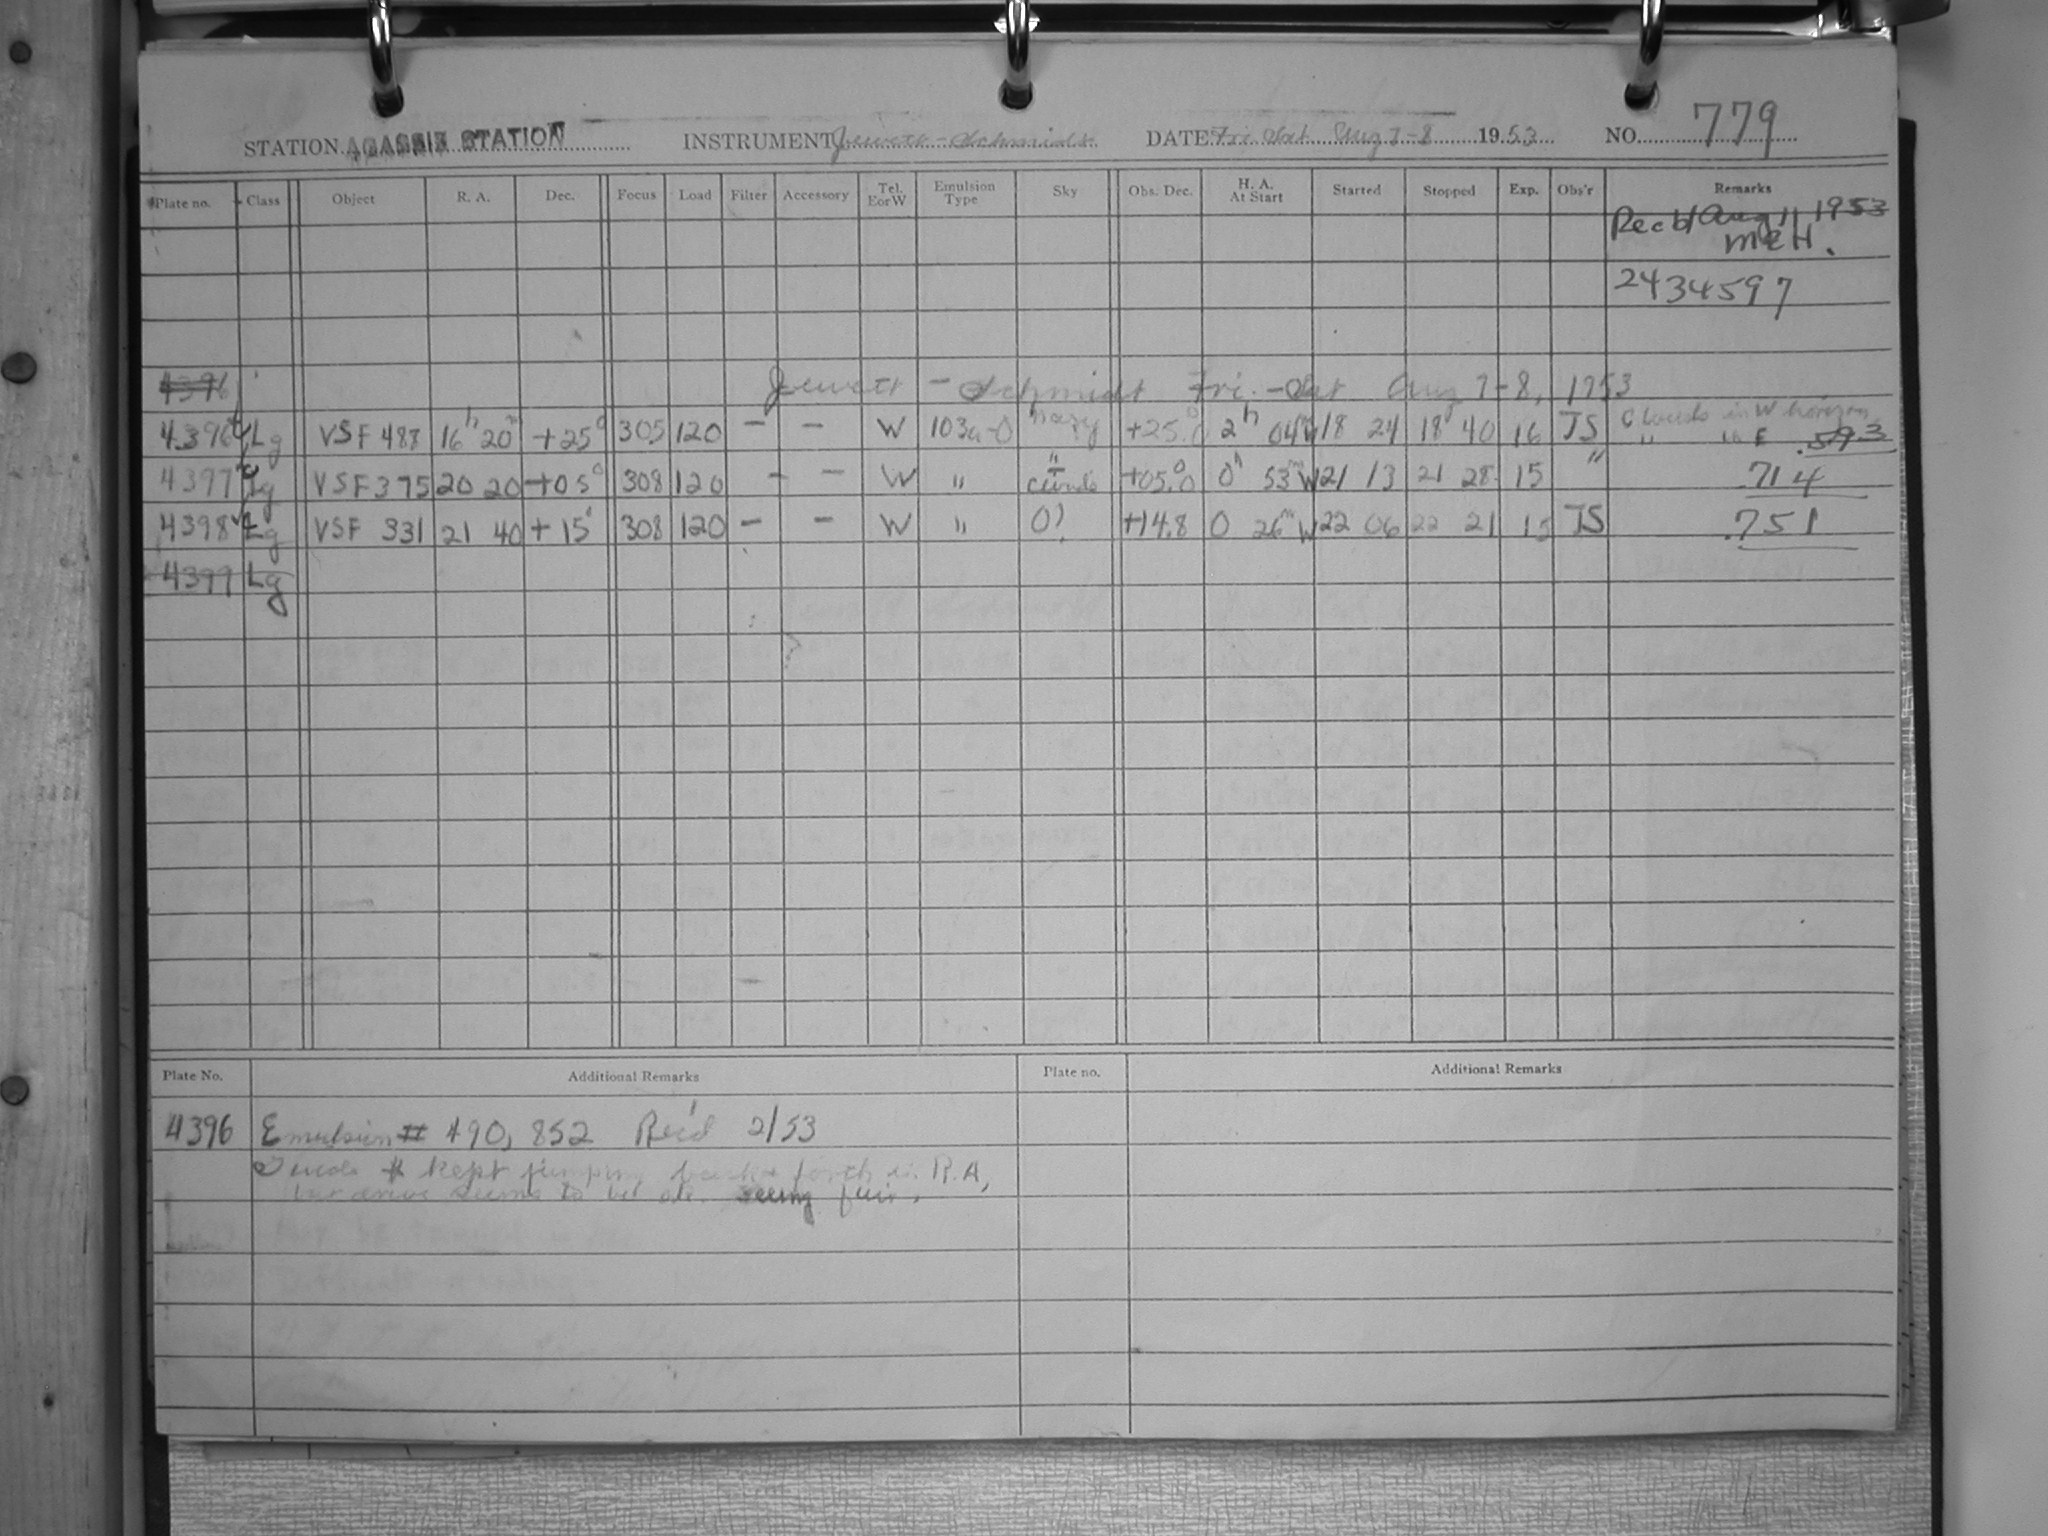 STATION AGASSIZ STATION INSTRUMENT Jewett-Schmidt DATE Fri-Sat Aug 7-8 1953 NO. 779
Plate no. Class Object R. A. Dec. Focus Load Filter Accessory Tel. E or W Emulsion Type Sky Obs. Dec. H. A. At Start Started Stopped Exp. Obs'r Remarks
Rec'd Aug 11, 1953
MEH.
2434597
4396 Jewett-Schmidt Fri.-Sat Aug 7-8, 1953
4396 Lg VSF 488 16h 20m +25° 305 120 - - W 103a-O hazy +25.0 2h 04m W 18 24 18 40 16 JS Clouds in W horizon
" in E .593
4397 Lg VSF 375 20 20 +05° 308 120 - - W " " +05.0 0h 53m W 21 13 21 28 15 " .714
4398 Lg VSF 331 21 40 +15° 308 120 - - W " O? +14.8 0 26m W 22 06 22 21 15 JS .751
4399 Lg
Plate No. Additional Remarks Plate no. Additional Remarks
4396 Emulsion # 490,852 Rec'd 2/53
* kept jumping back & forth in R.A,
but drive seems to be ok. Seeing fair.